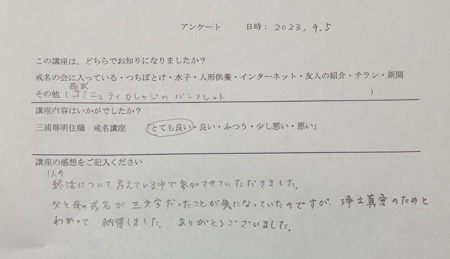 アンケート 日時：2023.9.5
この講座は、どちらでお知りになりましたか？
戒名の会に入っている・つちぼとけ・水子・人形供養・インターネット・友人の紹介・チラシ・新聞
西武
その他（コミニュティカレッジのパンフレット）
講座内容はいかがでしたか？
三浦尊明住職 戒名講座 「とても良い・良い・ふつう・少し悪い・悪い」
講座の感想をご記入ください
1人の
終活について考えている中で参加させていただきました。
父と母の戒名が三文字だったことが気になっていたのですが、浄土真宗のためと
わかって 納得しました。ありがとうございました。